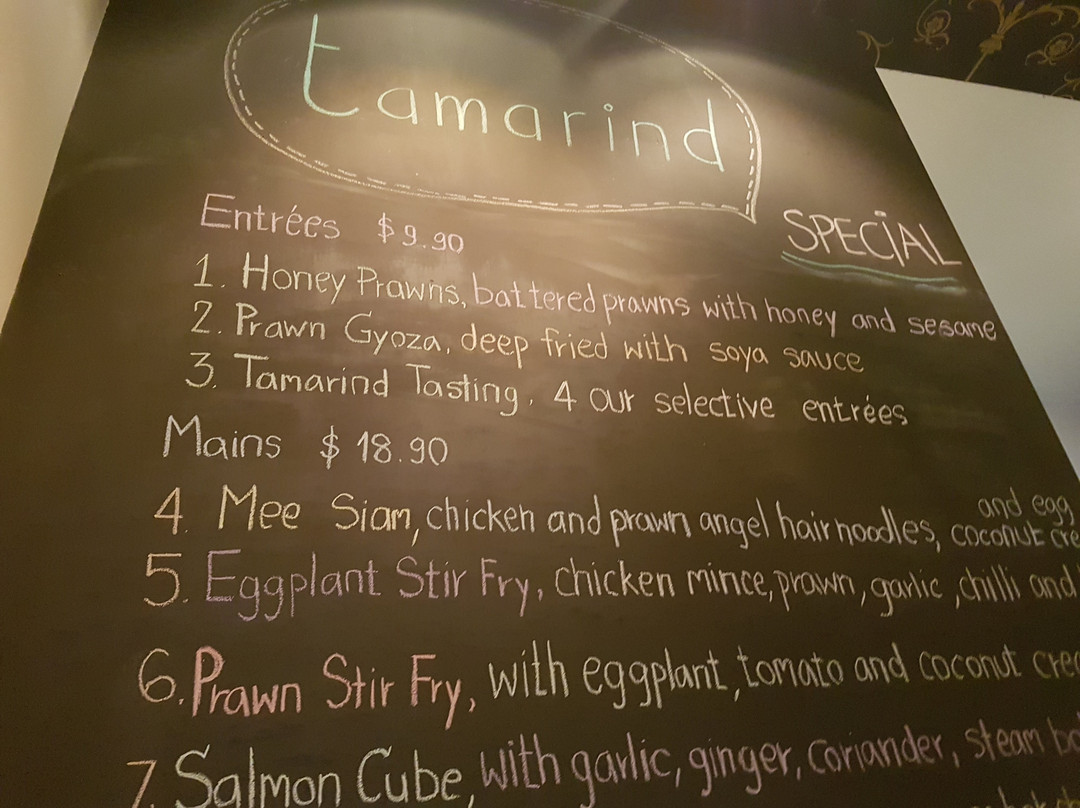 tamarind
SPECIAL
Entrées $9.90
1. Honey Prawns, battered prawns with honey and sesame
2. Prawn Gyoza, deep fried with soya sauce
3. Tamarind Tasting, 4 our selective entrées
Mains $18.90
and egg
4. Mee Siam, chicken and prawn angel hair noodles, coconut cre
5. Eggplant Stir Fry, chicken mince, prawn, garlic, chilli and
6. Prawn Stir Fry, with eggplant, tomato and coconut crea
7. Salmon Cube, with garlic, ginger, coriander, steam bo